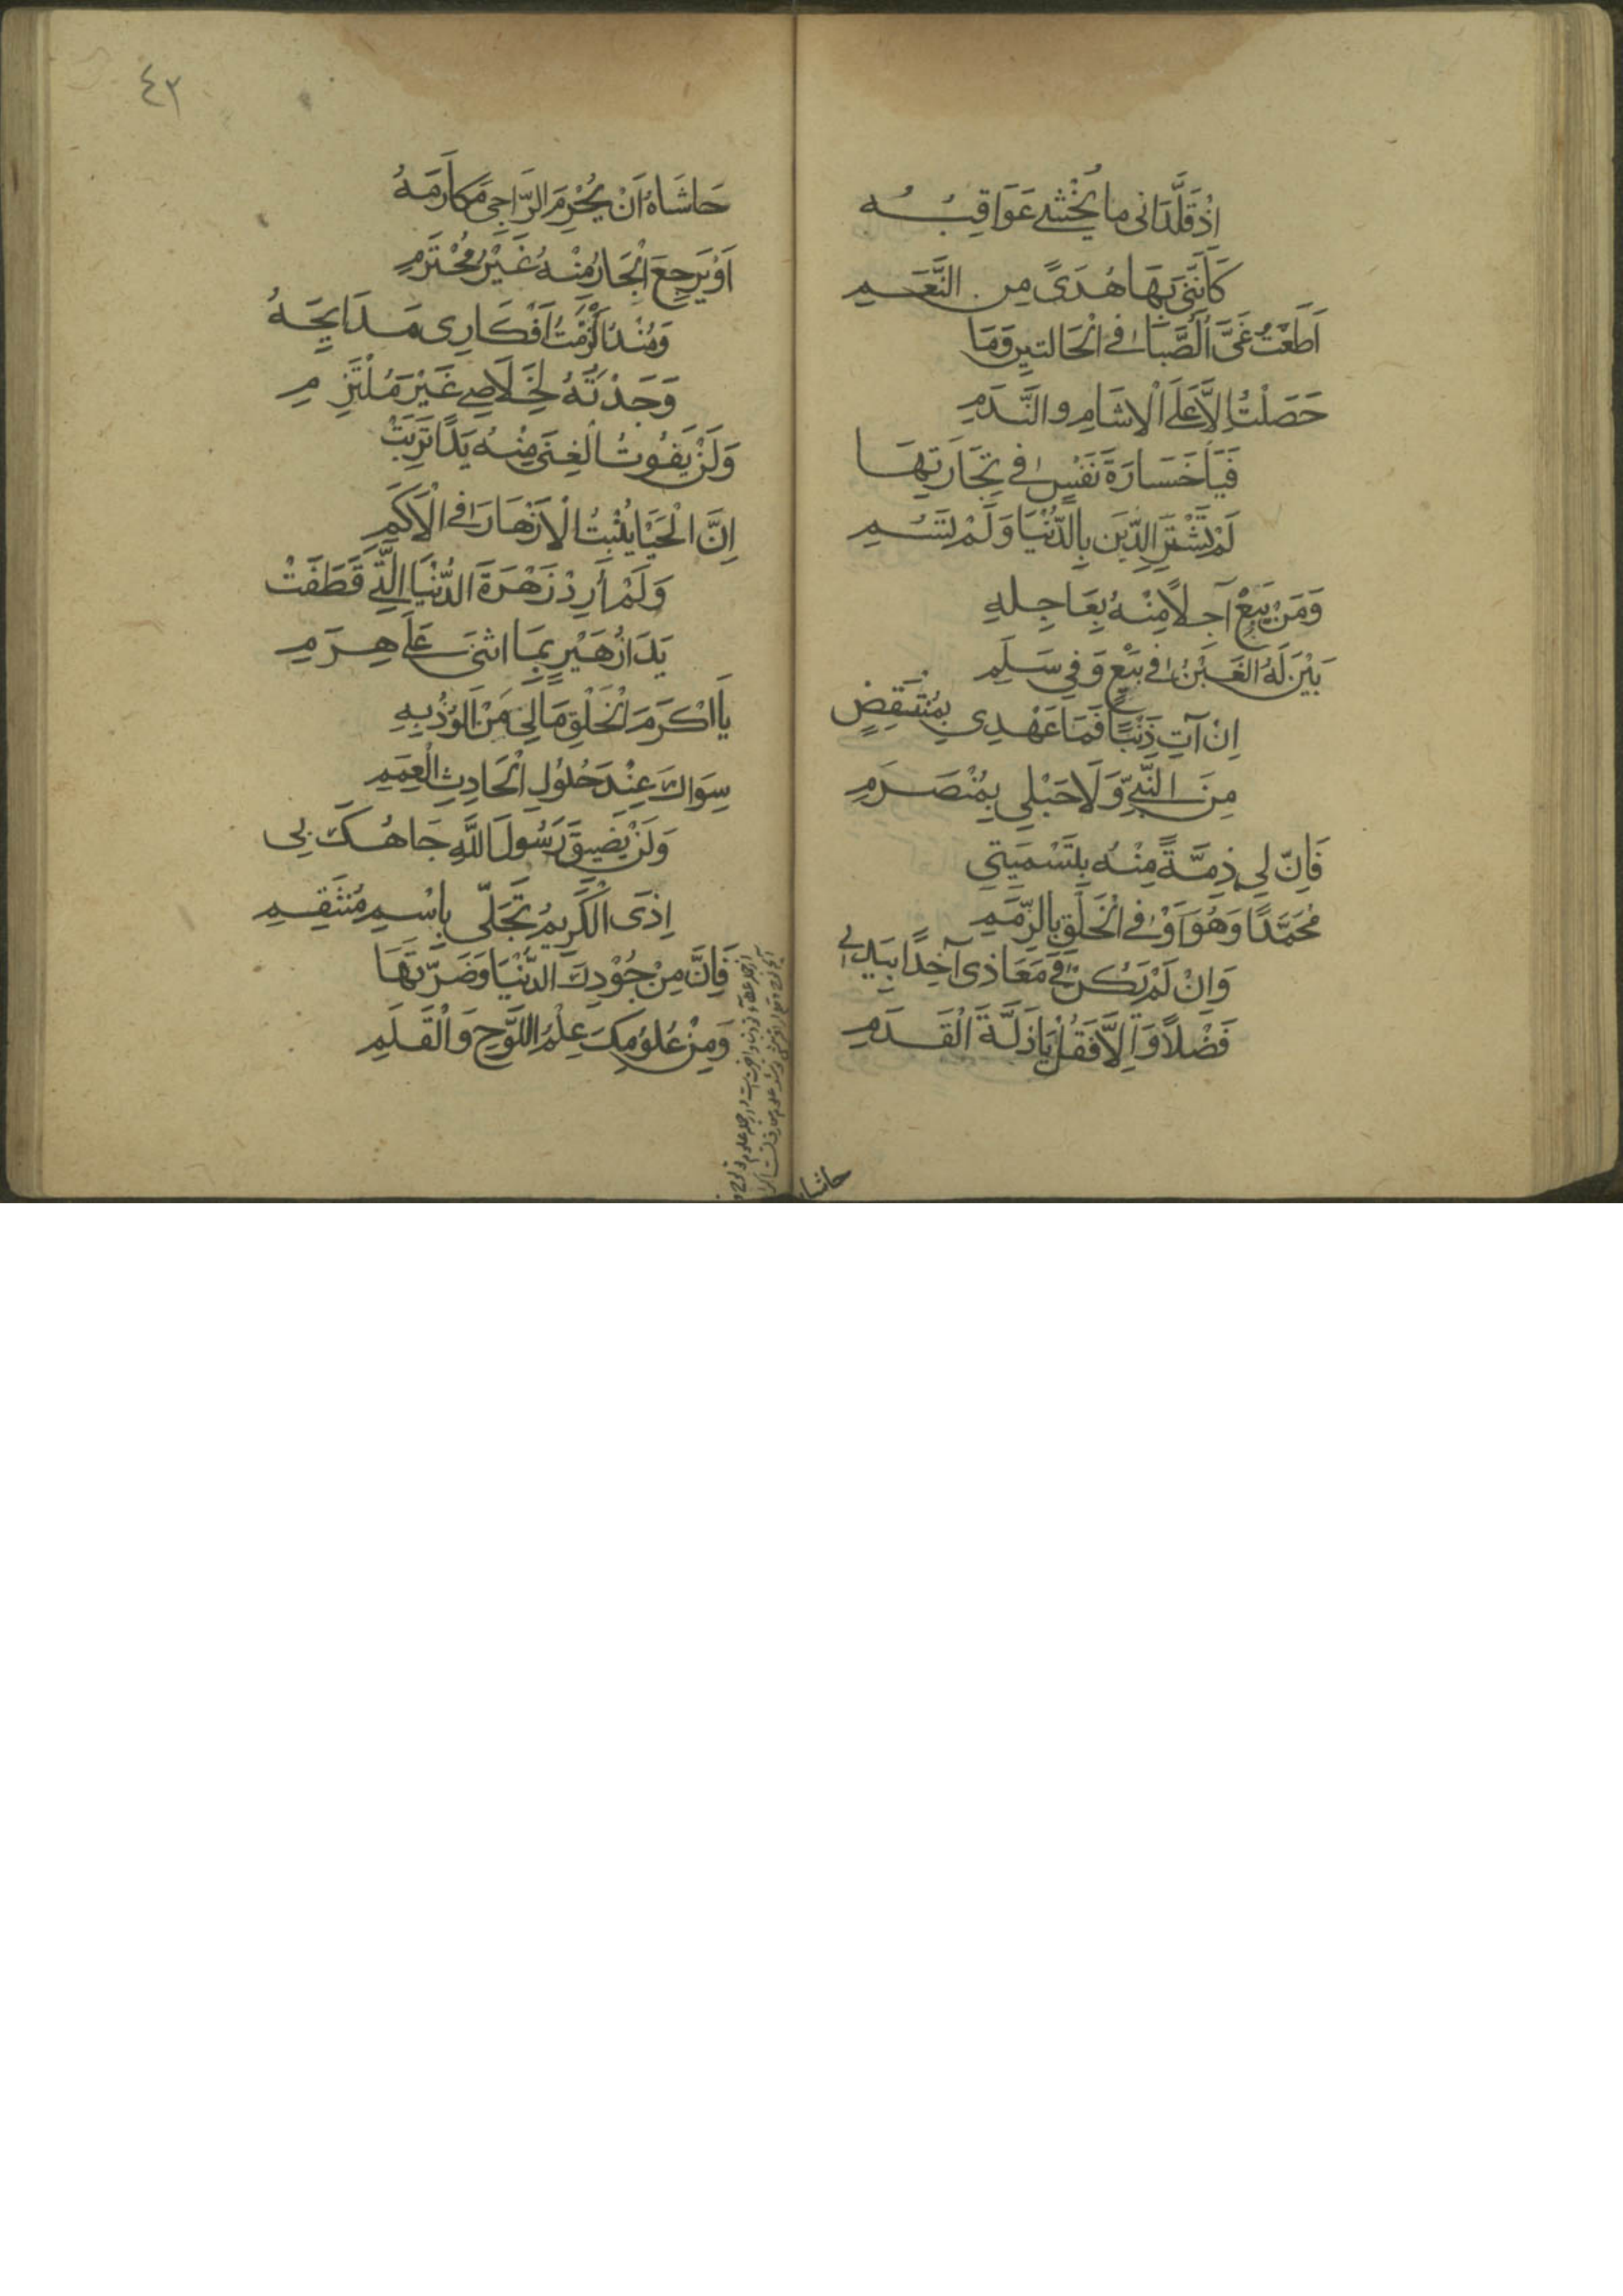 اِذْ قَلَّدَانِى ما يُخْشٰى عَوَاقِبُـــــهُ
كَاَنَّنِى بِهَا هُدَىً مِن النَّعَـــمِ
اَطَعْتُ غَىَّ الصَّبَا فِى الْحَالتينِ وَمَا
حَصَلْتُ اِلاَّ عَلَى الْاثَامِ والنَّدَمِ
فَيَا خَسَارَةَ نَفْسٍ فِى تِجَارَتِهَا
لَمْ تَشْتَرِ الدِّيَن بِالدُّنْيَا وَلَمْ تَسُـــمِ
وَمَنْ يَبِعْ آجِلاً مِنْهُ بِعَاجِلهِ
يَبْيَن لَهُ الغَبْنُ فِى بَيْعٍ وَفِى سَلَمِ
اِنْ آتِ ذَنْبًا فَمَا عَهْدِى بِمُنْتَقِضٍ
مِنَ النَّبِىِّ وَلَا حَبْلِى بِمُنْصَرَمِ
فَاِنّ لِى ذِمَّةً مِنْهُ بِتَسْمِيَتِى
مُحَمَّدًا وَهُوَ اَوْفٰى فِى الْخَلْقِ بِالذِّمَمِ
وَاِنْ لَمْ يَكُن فِى مَعَاذى آخِذًا بِيَدِى
فَضْلاً وَاِلاَّ فَقُلْ يَا زَلَّةَ الْقَــدَمِ
حاشاه
٤٢
حَاشَاهُ اَنْ يُحْرِمَ الرَّاجِى مَكَارِمَهُ
اَوْ يَرجِعَ الْجَارُ مِنْهُ غَيْرَ مُحْتَرَمِ
وَمُنْذُ اَلْزَمْتُ اَفْكَارِى مَدَايِحَهُ
وَجَدْتُهُ لِخَلَاصِى غَيْرَ مُلْتَزِمِ
وَلَنْ يَفُوتُ الْغِنَى مِنْهُ يَدًا تَرِبَتْ
اِنَّ الْحَيَا يُنْبِتُ الْاَزْهَارَ فِى الْاَكَمِ
وَلَمْ أُرِدْ زَهْرَةَ الدُّنْيَا الَّتِى قَطَفَتْ
يَدَا زُهَيْرٍ بِمَا اثنَى عَلَى هِرَمِ
يَا اَكْرَمَ الْخَلْقِ مَالِى مَنْ اَلُوذُ بِهِ
سِوَاكَ عِنْدَ حُلُولِ الْحَادِثِ الْعِمَمِ
وَلَنْ يَضِيقَ رَسُولَ اللَّهِ جَاهُكَ بِى
اِذَى الْكَرِيمُ تَجَلّى بِاسْمِ مُنْتَقِمِ
فَاِنَّ مِنْ جُوْدِكَ الدُّنْيَا وَضَرَّتَهَا
وَمِنْ عُلُومِكَ عِلْمُ اللَّوْحِ وَالْقَلَمِ